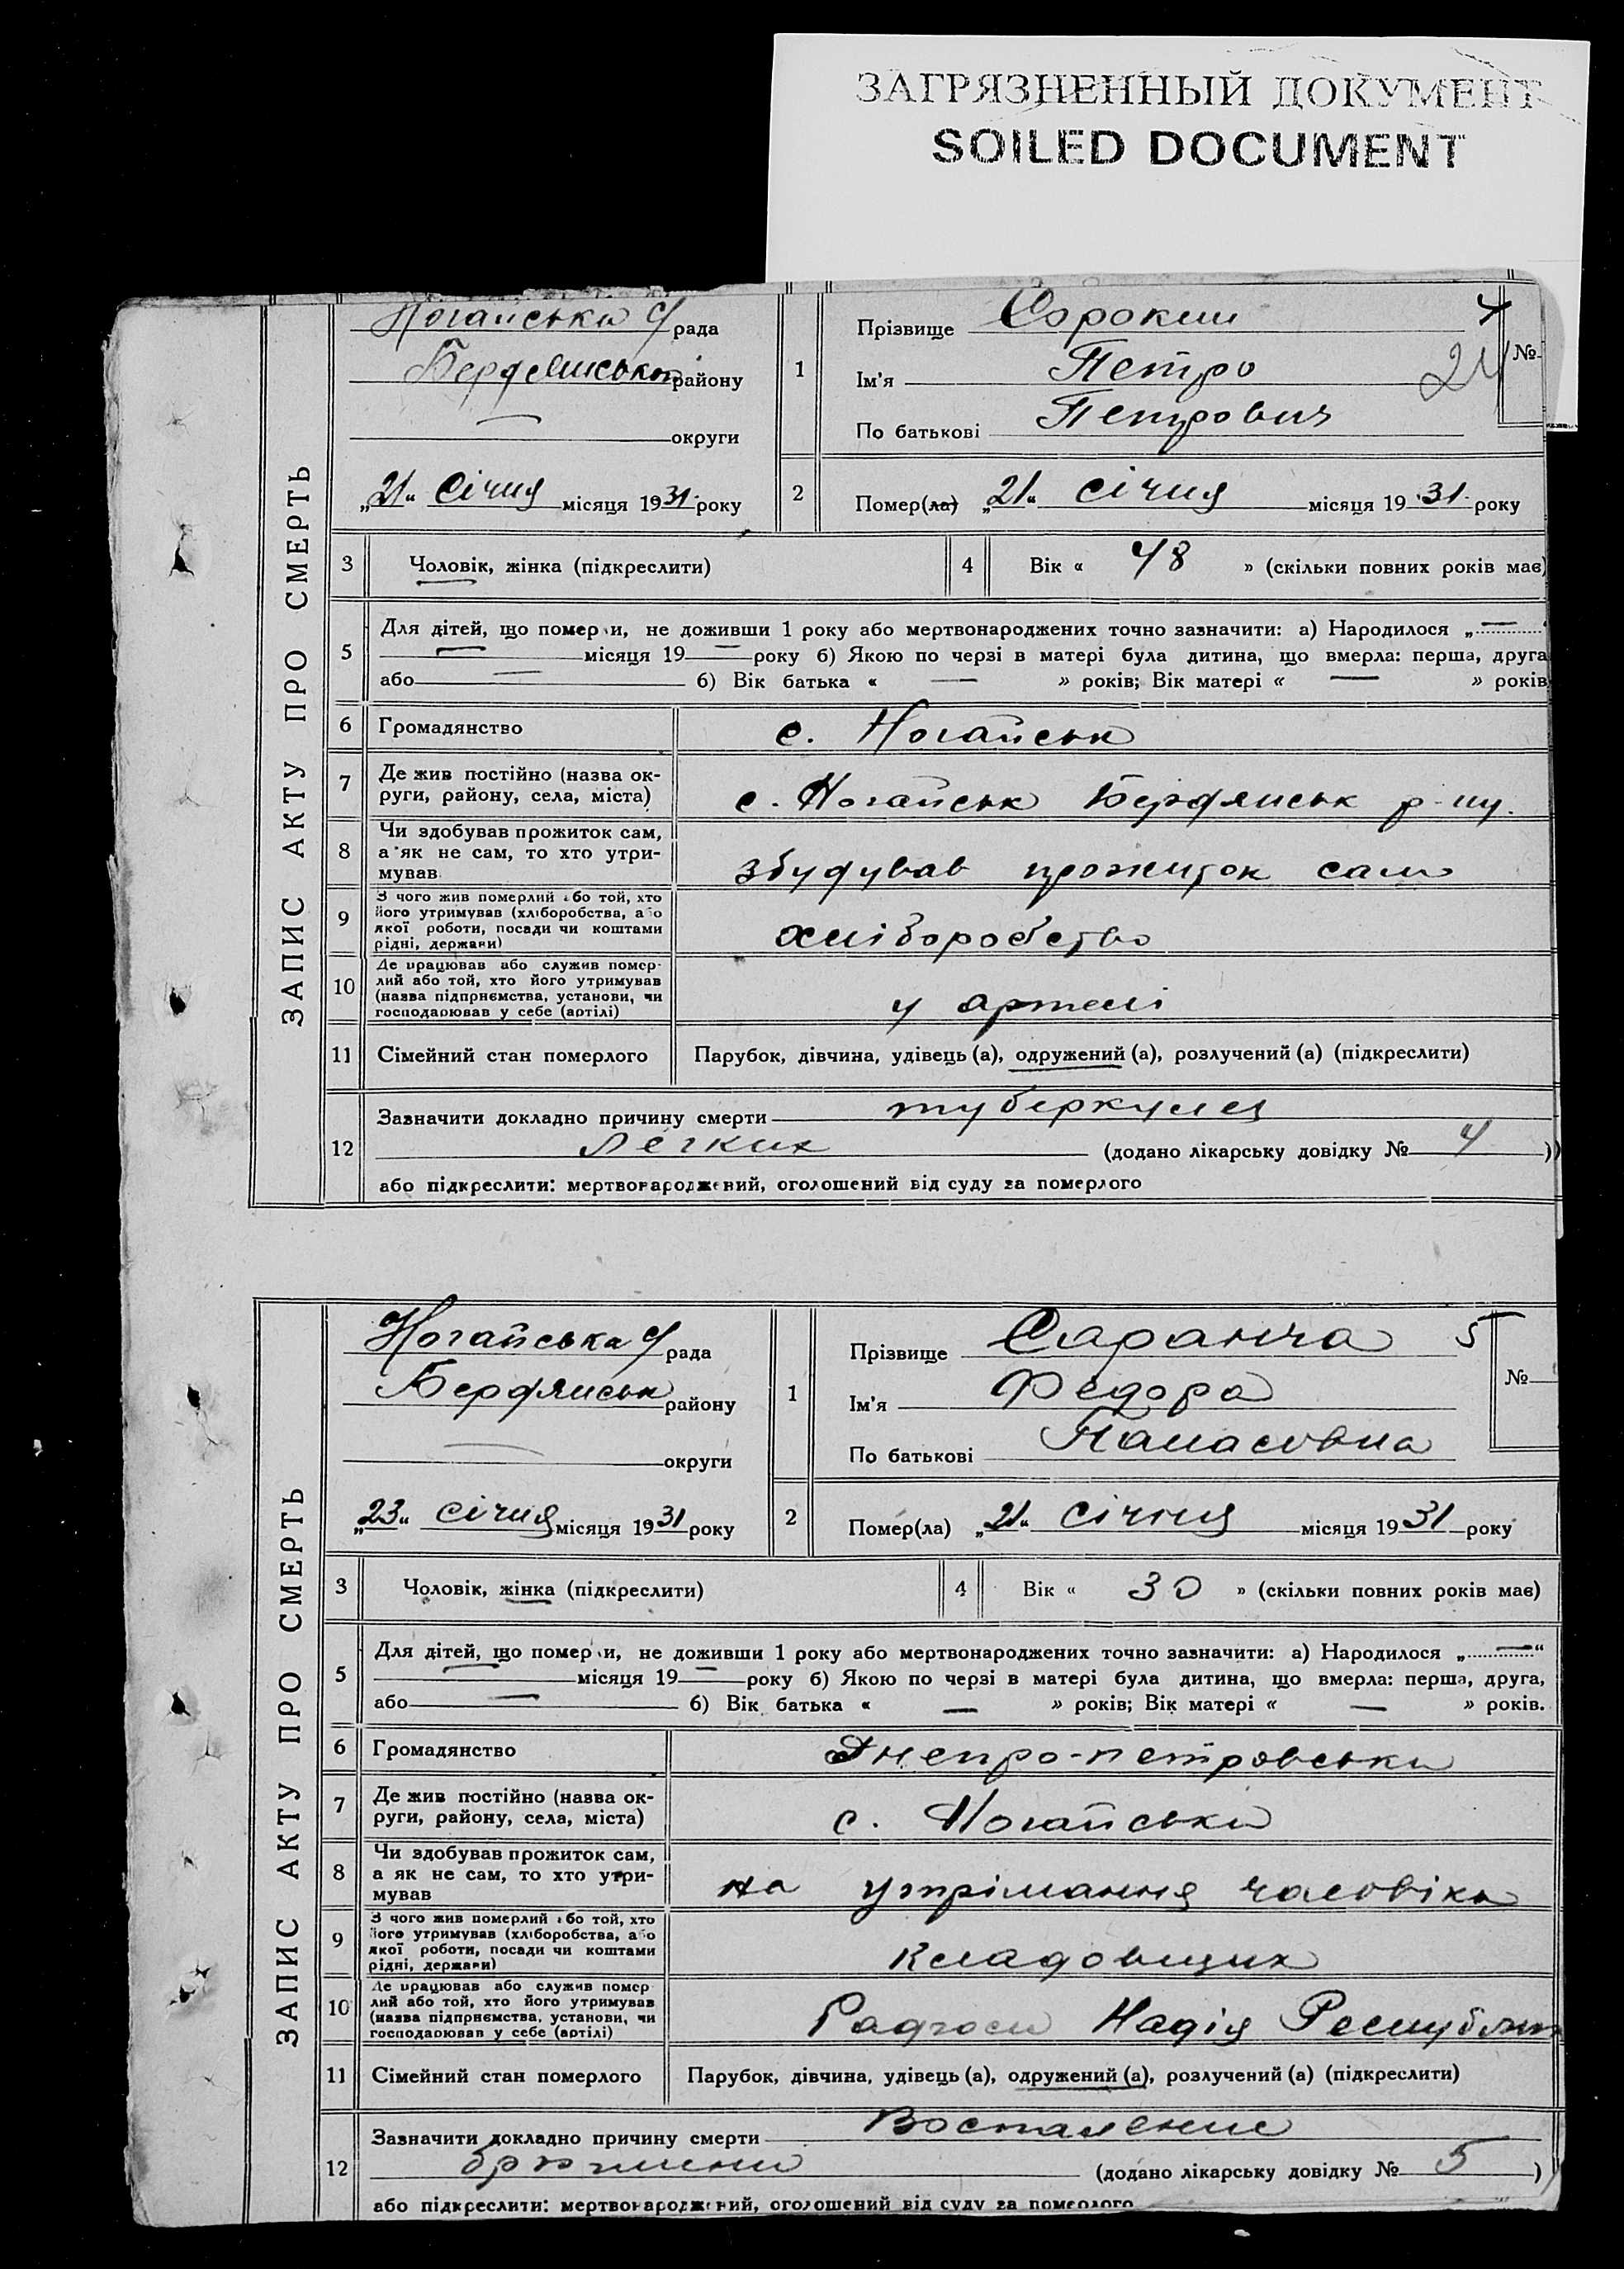 ЗАГРЯЗНЕННЫЙ ДОКУМЕНТ
SOILED DOCUMENT
ЗАПИС АКТУ ПРО СМЕРТЬ
Ногайська с/рада
Бердянськ району
— округи
„21“ січня місяця 1931 року
1
Прізвище Сорокин 4
Ім'я Петро 24 №
По батькові Петрович
2
Помер(ла) „21“ січня місяця 1931 року
3 Чоловік, жінка (підкреслити)
4 Вік « 48 » (скільки повних років має)
5 Для дітей, що померли, не доживши 1 року або мертвонароджених точно зазначити: а) Народилося „—“
— місяця 19— року б) Якою по черзі в матері була дитина, що вмерла: перша, друга
або — б) Вік батька « — » років; Вік матері « — » років
6 Громадянство с. Ногайськ
7 Де жив постійно (назва ок-
руги, району, села, міста) с. Ногайськ Бердянськ р-ну.
8 Чи здобував прожиток сам,
а як не сам, то хто утри-
мував збудував прожиток сам
9 З чого жив померлий або той, хто
його утримував (хліборобства, або
якої роботи, посади чи коштами
рідні, держави) хліборобство
10 Де працював або служив помер-
лий або той, хто його утримував
(назва підприємства, установи, чи
господарював у себе (артілі) у артелі
11 Сімейний стан померлого Парубок, дівчина, удівець (а), одружений (а), розлучений (а) (підкреслити)
12 Зазначити докладно причину смерти туберкулез
легких (додано лікарську довідку № 4 )
або підкреслити: мертвонароджений, оголошений від суду за померлого
ЗАПИС АКТУ ПРО СМЕРТЬ
Ногайська с/рада
Бердянськ району
— округи
„23“ січня місяця 1931 року
1
Прізвище Саранча 5
Ім'я Федора №
По батькові Панасовна
2
Помер(ла) „21“ січня місяця 1931 року
3 Чоловік, жінка (підкреслити)
4 Вік « 30 » (скільки повних років має)
5 Для дітей, що померли, не доживши 1 року або мертвонароджених точно зазначити: а) Народилося „—“
— місяця 19— року б) Якою по черзі в матері була дитина, що вмерла: перша, друга,
або — б) Вік батька « — » років; Вік матері « — » років.
6 Громадянство Днепро-петровськ
7 Де жив постійно (назва ок-
руги, району, села, міста) с. Ногайськ
8 Чи здобував прожиток сам,
а як не сам, то хто утри-
мував на утрімання чаловіка
9 З чого жив померлий або той, хто
його утримував (хліборобства, або
якої роботи, посади чи коштами
рідні, держави) кладовщик
10 Де працював або служив помер
лий або той, хто його утримував
(назва підприємства, установи, чи
господарював у себе (артілі) Радгосп Надія Республіки
11 Сімейний стан померлого Парубок, дівчина, удівець (а), одружений (а), розлучений (а) (підкреслити)
12 Зазначити докладно причину смерти Воспаление
брюшини (додано лікарську довідку № 5 )
або підкреслити: мертвонароджений, оголошений від суду за померлого